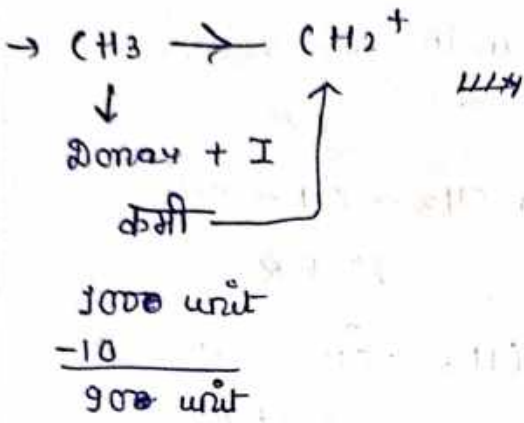 → CH3 → CH2+
↓
Donar + I
कमी
1000 unit
-10
900 unit